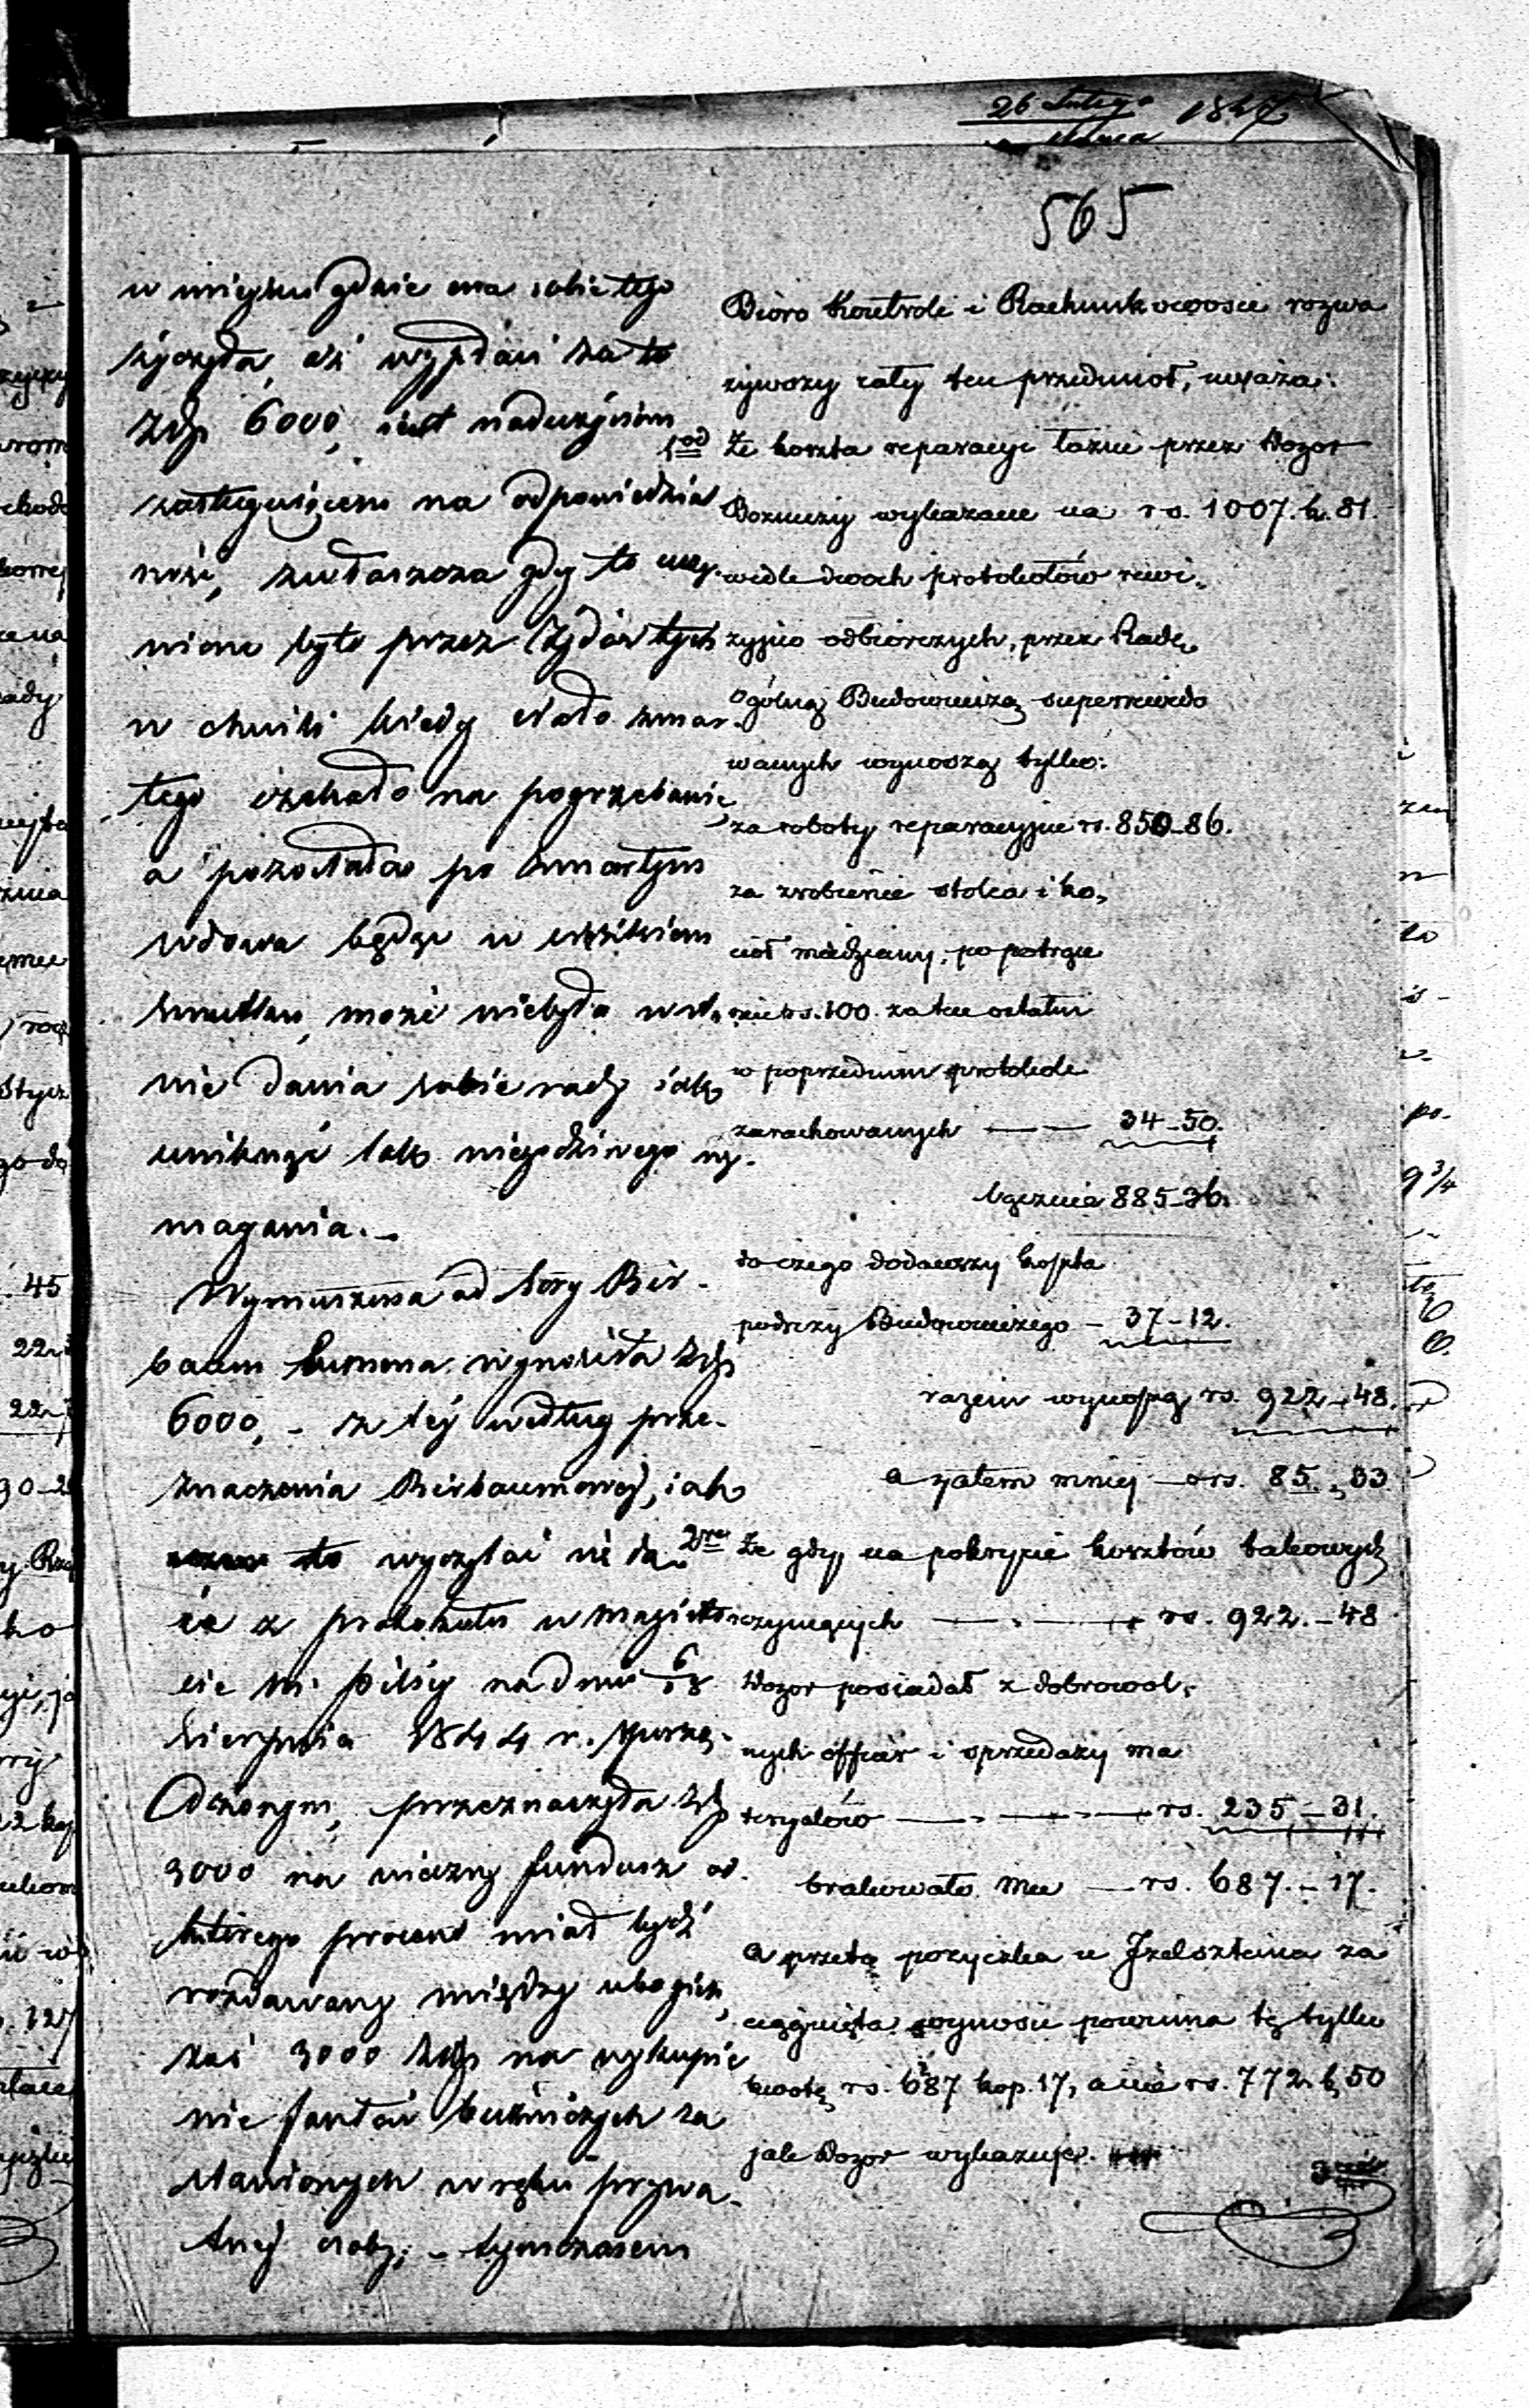 26 Lutego 1847
Marca
565
w miejscu gdzie ona sobie tego
życzyła, ażi wypłaci za to
Złp 6000, iest nadużyciem
zasługuiącem na odpowiedzial
ność, zwłaszcza gdy to uczy-
nione było przez Żydów tych
w chwili kiedy ciało zmar-
łego czekało na pogrzebanie
a pozostała po zmarłym
wdowa będąc w ciężkiem
smutku, może niebyła w sta
nie dania sobie rady iak
uniknąć tak niegodziwego wy-
magania. -
Wymuszona od téy Bir-
baum Summa wynosiła Złp
6000, - z téy według prze-
znaczenia Birbaumowéj, iak
to wyczytać się da-
ie z protokułu w Magistra
cie m. Pilicy na dniu 6/18
Sierpnia 1844 r. sporzą-
dzonym, przeznaczyła Złp
3000 na wieczny fundusz od
którego procent miał bydź
rozdawany między ubogich,
zaś 3000 Złp na wykupie
nie fantów bużniczych za
stawionych w ręku prywa-
tnéj osoby; - tymczasem
Bióro Kontroli i Rachunkowości rozwa
żywszy cały ten przedmiot, uważa:
1od Że koszta reparacyi łaźni przez Dozor
Bozniczy wykazane na rs. 1007. k. 81.
wedle dwoch protokołów rewi-
zyjno odbiorczych, przez Radę
Ogólną Budowniczą superrewido
wanych wynoszą tylko:
za roboty reparacyjne rs. 850-86.
za zrobienie stolca i ko-
cioł miedziany, po potrące
niu rs. 100 za ten ostatni
w poprzednim protokole
zarachowanych — — 34-50.
łącznie 885-36.
do czego dodawszy koszta
podrózy Budowniczego - 37-12.
razem wynoszą rs. 922-48.
a zatem mniej — o rs. 85. „ 33
2re Że gdy na pokrycie kosztów takowych
czyniących — rs. 922.-48
Dozor posiadał z dobrowol-
nych offiar i sprzedaży ma
teryałów — rs. 235-31.
brakowało mu — rs. 687.-17.
a przeto pożyczka u Izelszteina za
ciągnięta wynosić powinna tę tylko
kwotę rs. 687 kop. 17, a nie rs. 772. k. 50
jak Dozor wykazuje.